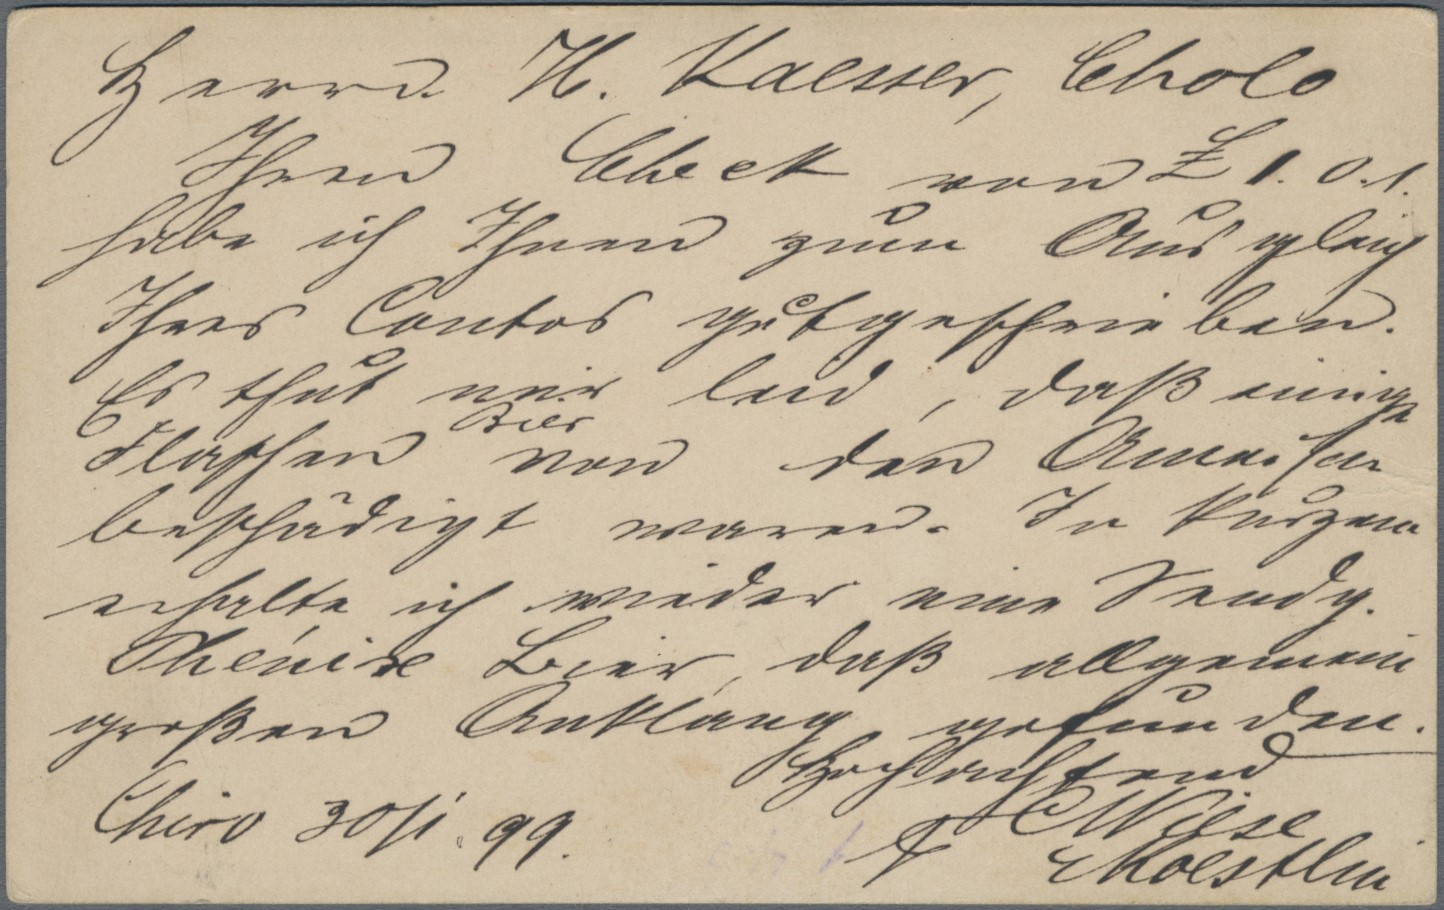 Herrn H. Kaesser, Cholo
Ihren Check von £ 1.0.1.
habe ich Ihnen zum Ausgleich
Ihres Contos gutgeschrieben.
Es thut mir leid, daß einige
Flaschen Bier von den Ameisen
beschädigt waren. In Kurzem
erhalte ich wieder eine Sendg.
Bier, daß allgemein
großen Anklang gefunden.
Hochachtend
Chiro 30/1. 99. C Wiese
Moestlin